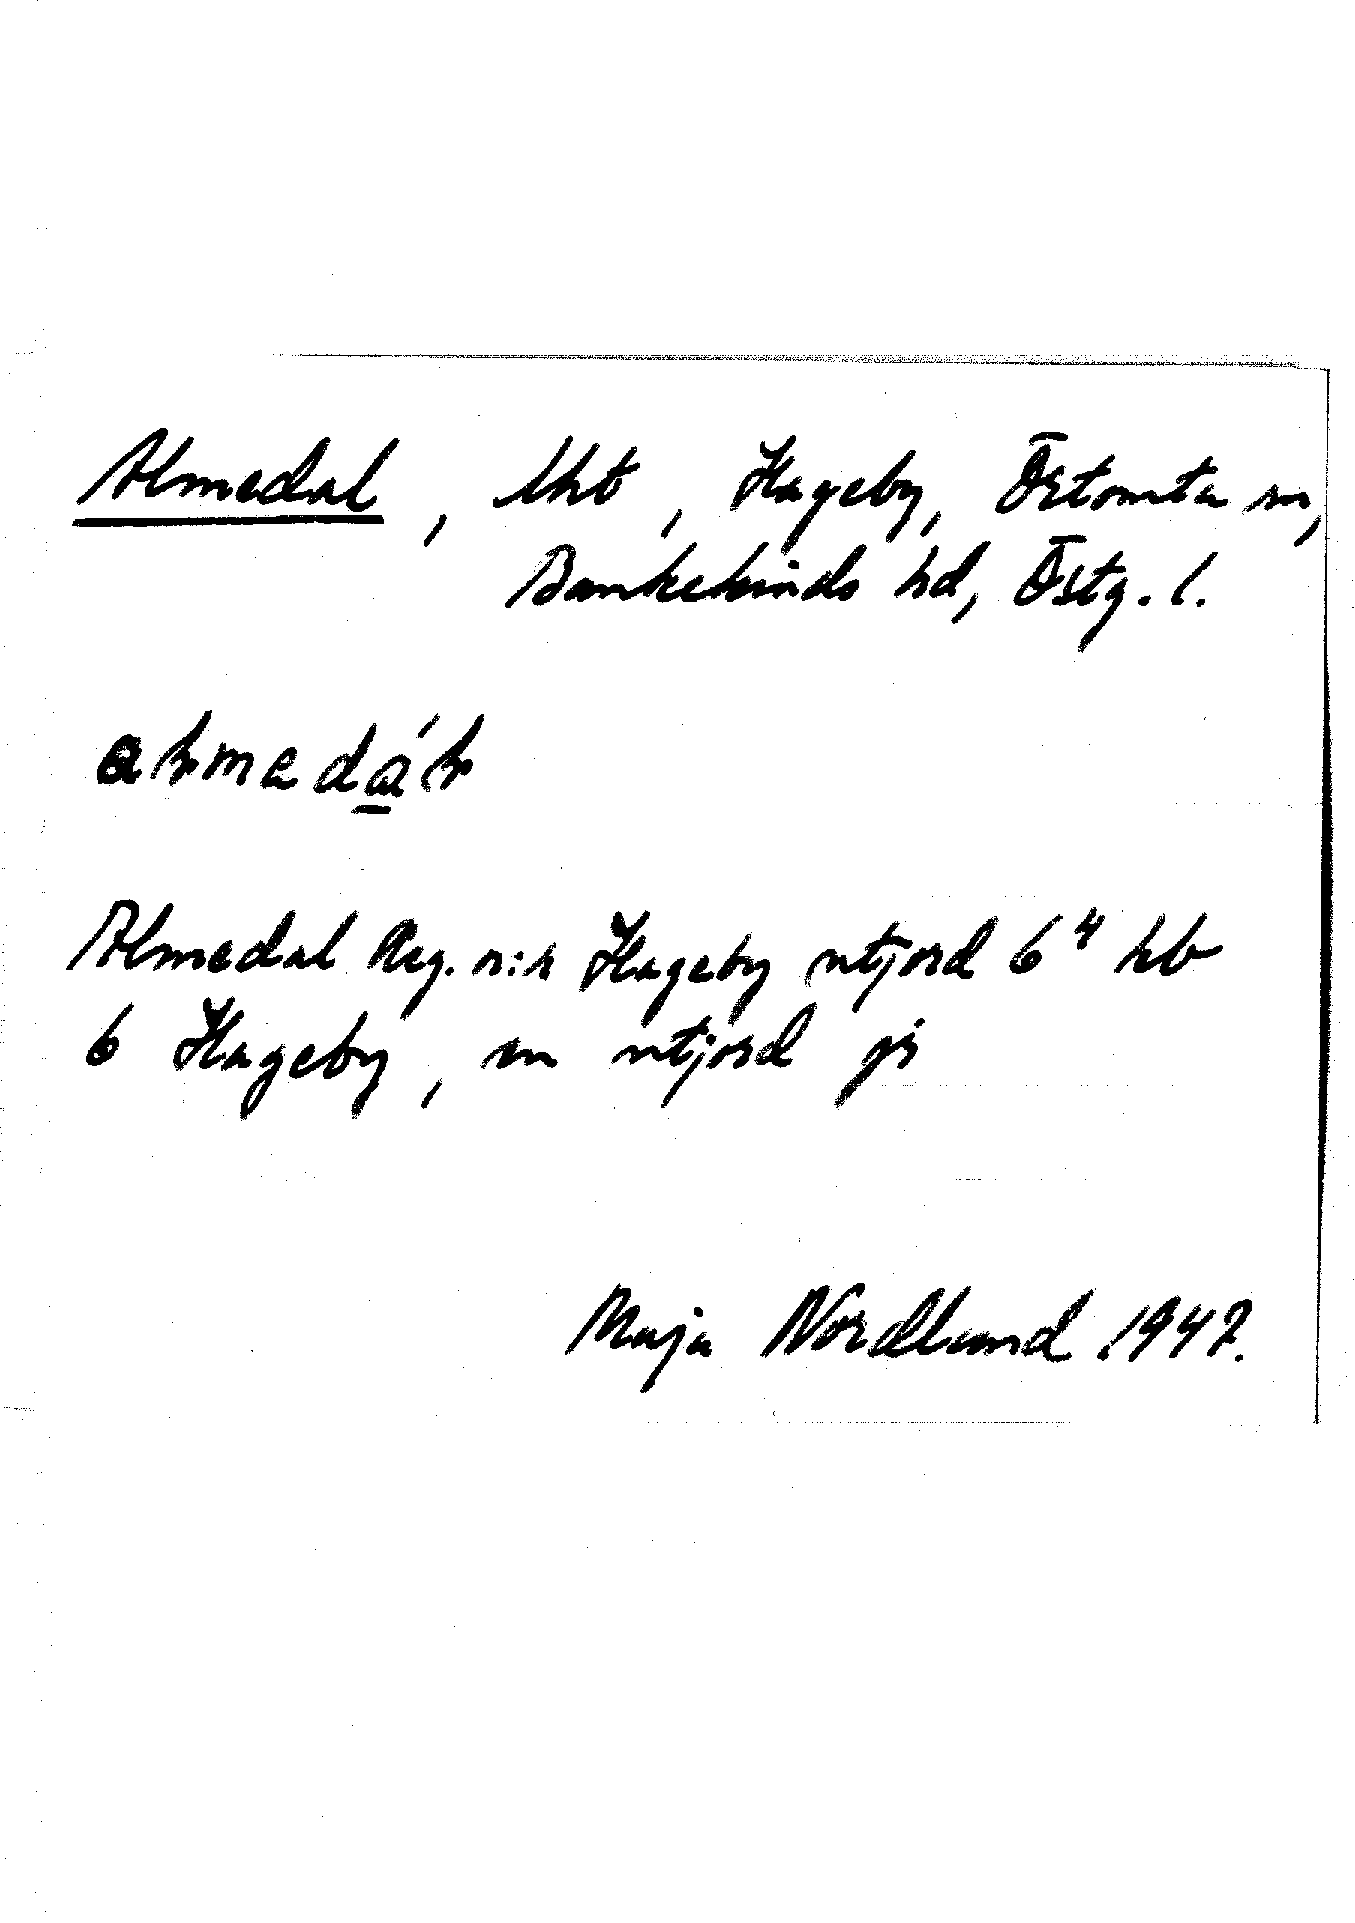 Almedal, lht, Hageby, Östomta sn,
Bankekinds hd, Östg. l.
Almedal Reg. n:r Hageby utjord 6⁴ hb
6 Hageby, en utjord gr
Maja Nordlund 1947.